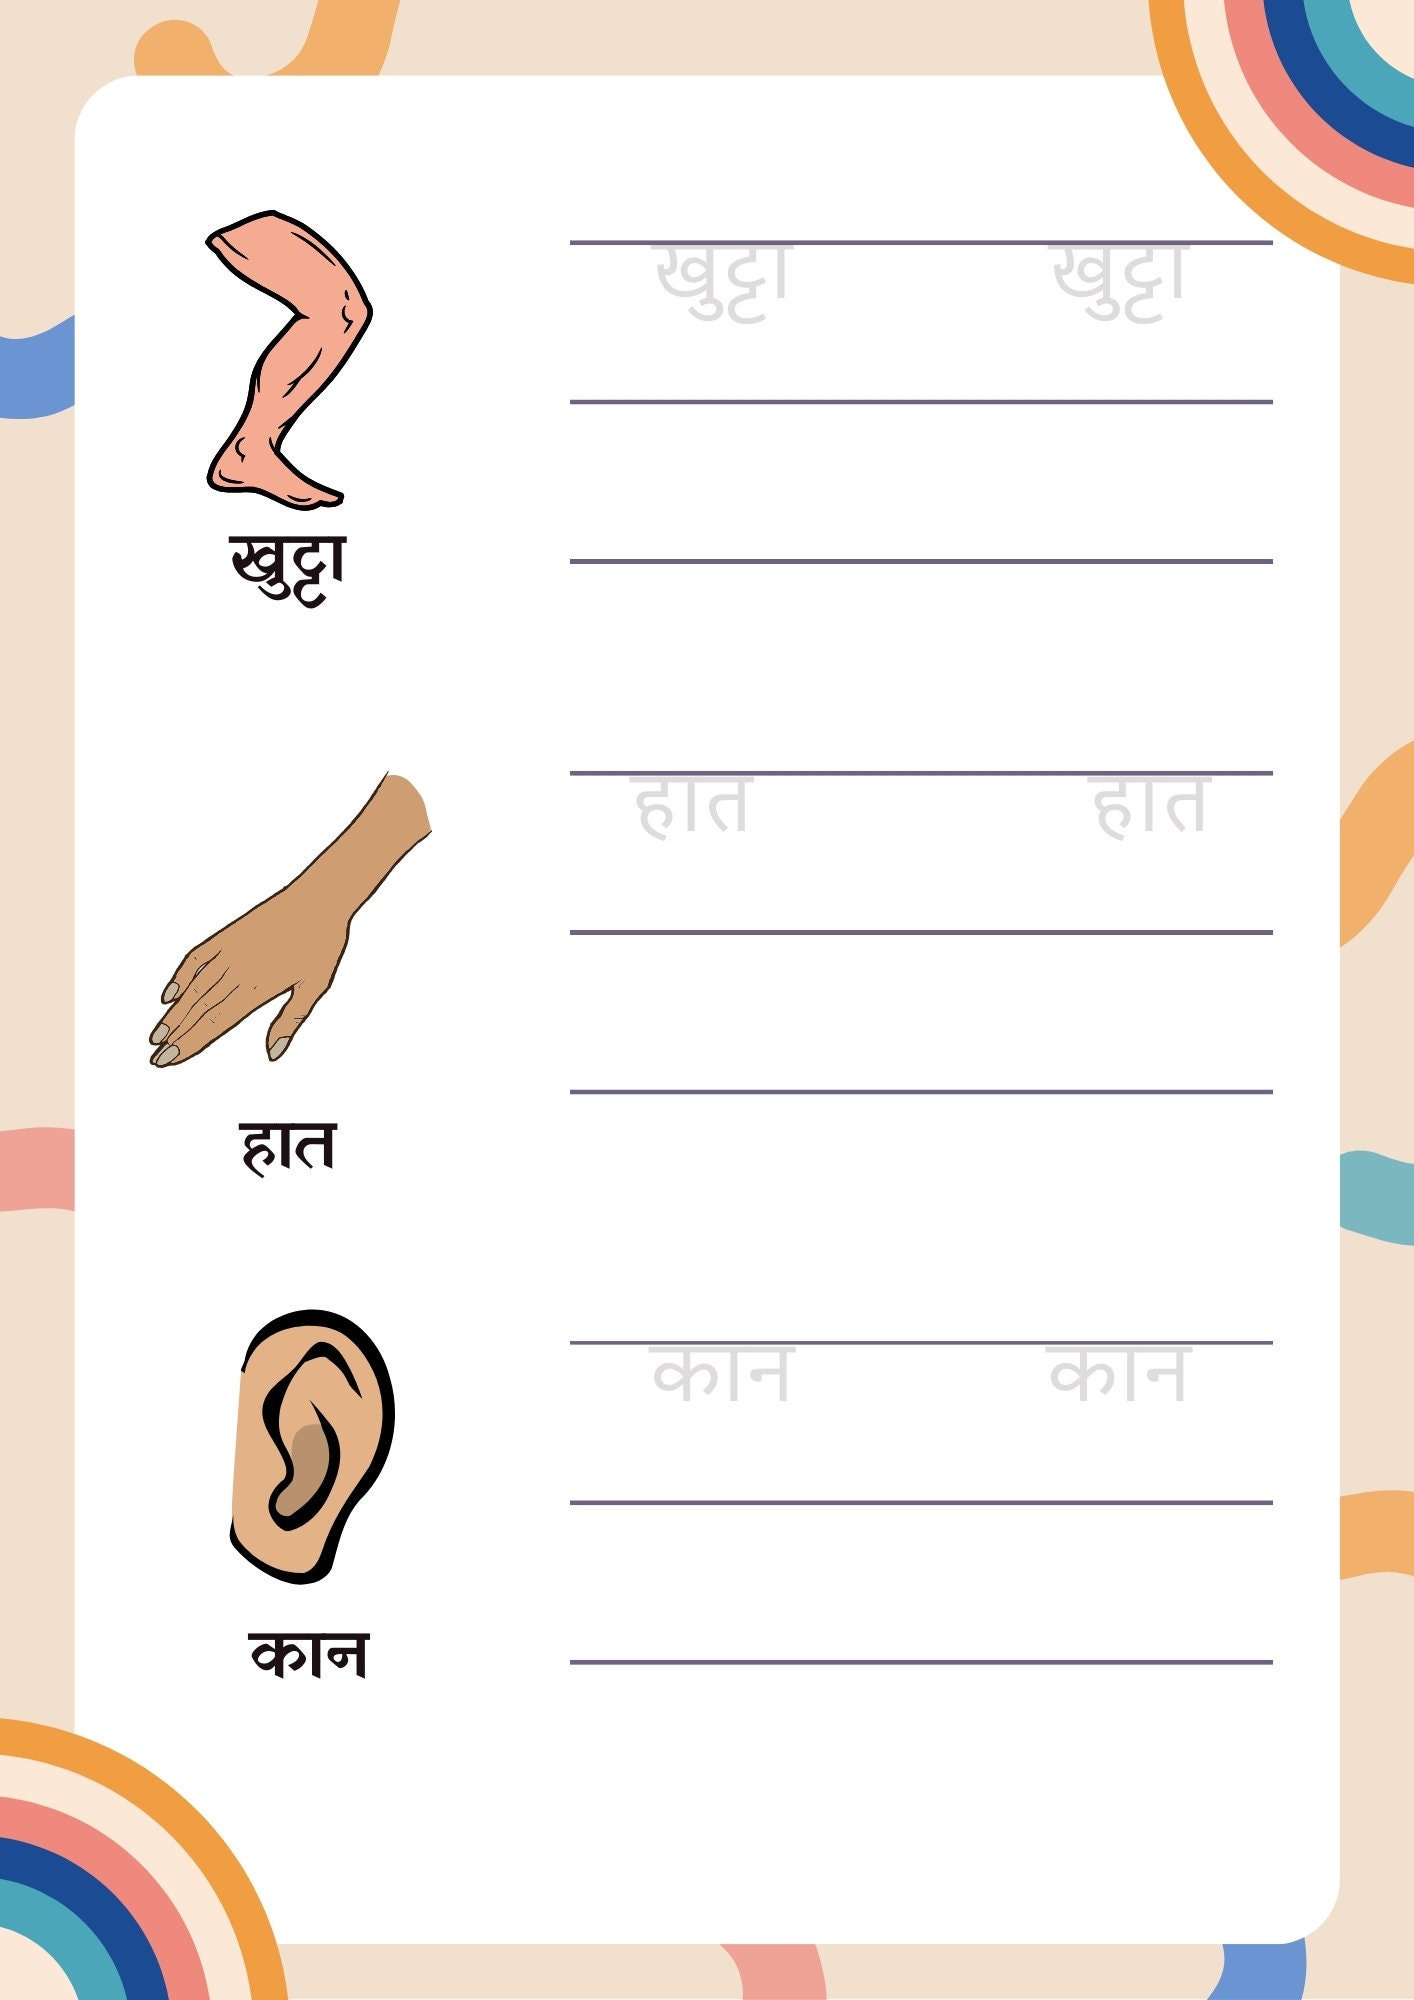 खुट्टा खुट्टा
खुट्टा
हात हात
हात
कान कान
कान